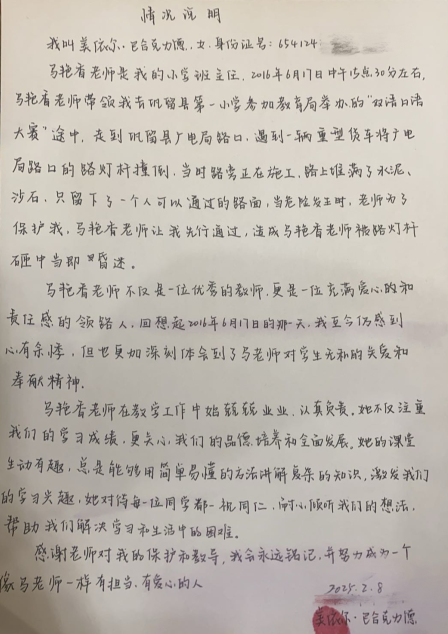 情况说明
我叫美依尔·巴合克力德，女，身份证号：654124
马艳香老师是我的小学班主任，2016年6月17日中午15点30分左右，
马艳香老师带领我去巩留县第一小学参加教育局举办的“双语口语
大赛”途中，走到巩留县广电局路口，遇到一辆重型货车将广电
局路口的路灯杆撞倒，当时路旁正在施工，路上堆满了水泥、
沙石，只留下了一个人可以通过的路面，当危险发生时，老师为了
保护我，马艳香老师让我先行通过，造成马艳香老师被路灯杆
砸中当即昏迷。
马艳香老师不仅是一位优秀的教师，更是一位充满爱心的和
责任感的领路人，回想起2016年6月17日的那一天，我至今仍感到
心有余悸，但也更加深刻体会到了马老师对学生无私的关爱和
奉献精神。
马艳香老师在教学工作中始兢兢业业，认真负责。她不仅注重
我们的学习成绩，更关心我们的品德培养和全面发展。她的课堂
生动有趣，总是能够用简单易懂的方法讲解复杂的知识，激发我们
的学习兴趣，她对待每一位同学都一视同仁，耐心倾听我们的想法，
帮助我们解决学习和生活中的困难。
感谢老师对我的保护和教导，我会永远铭记，并努力成为一个
像马老师一样有担当、有爱心的人
2025.2.8
美依尔·巴合克力德